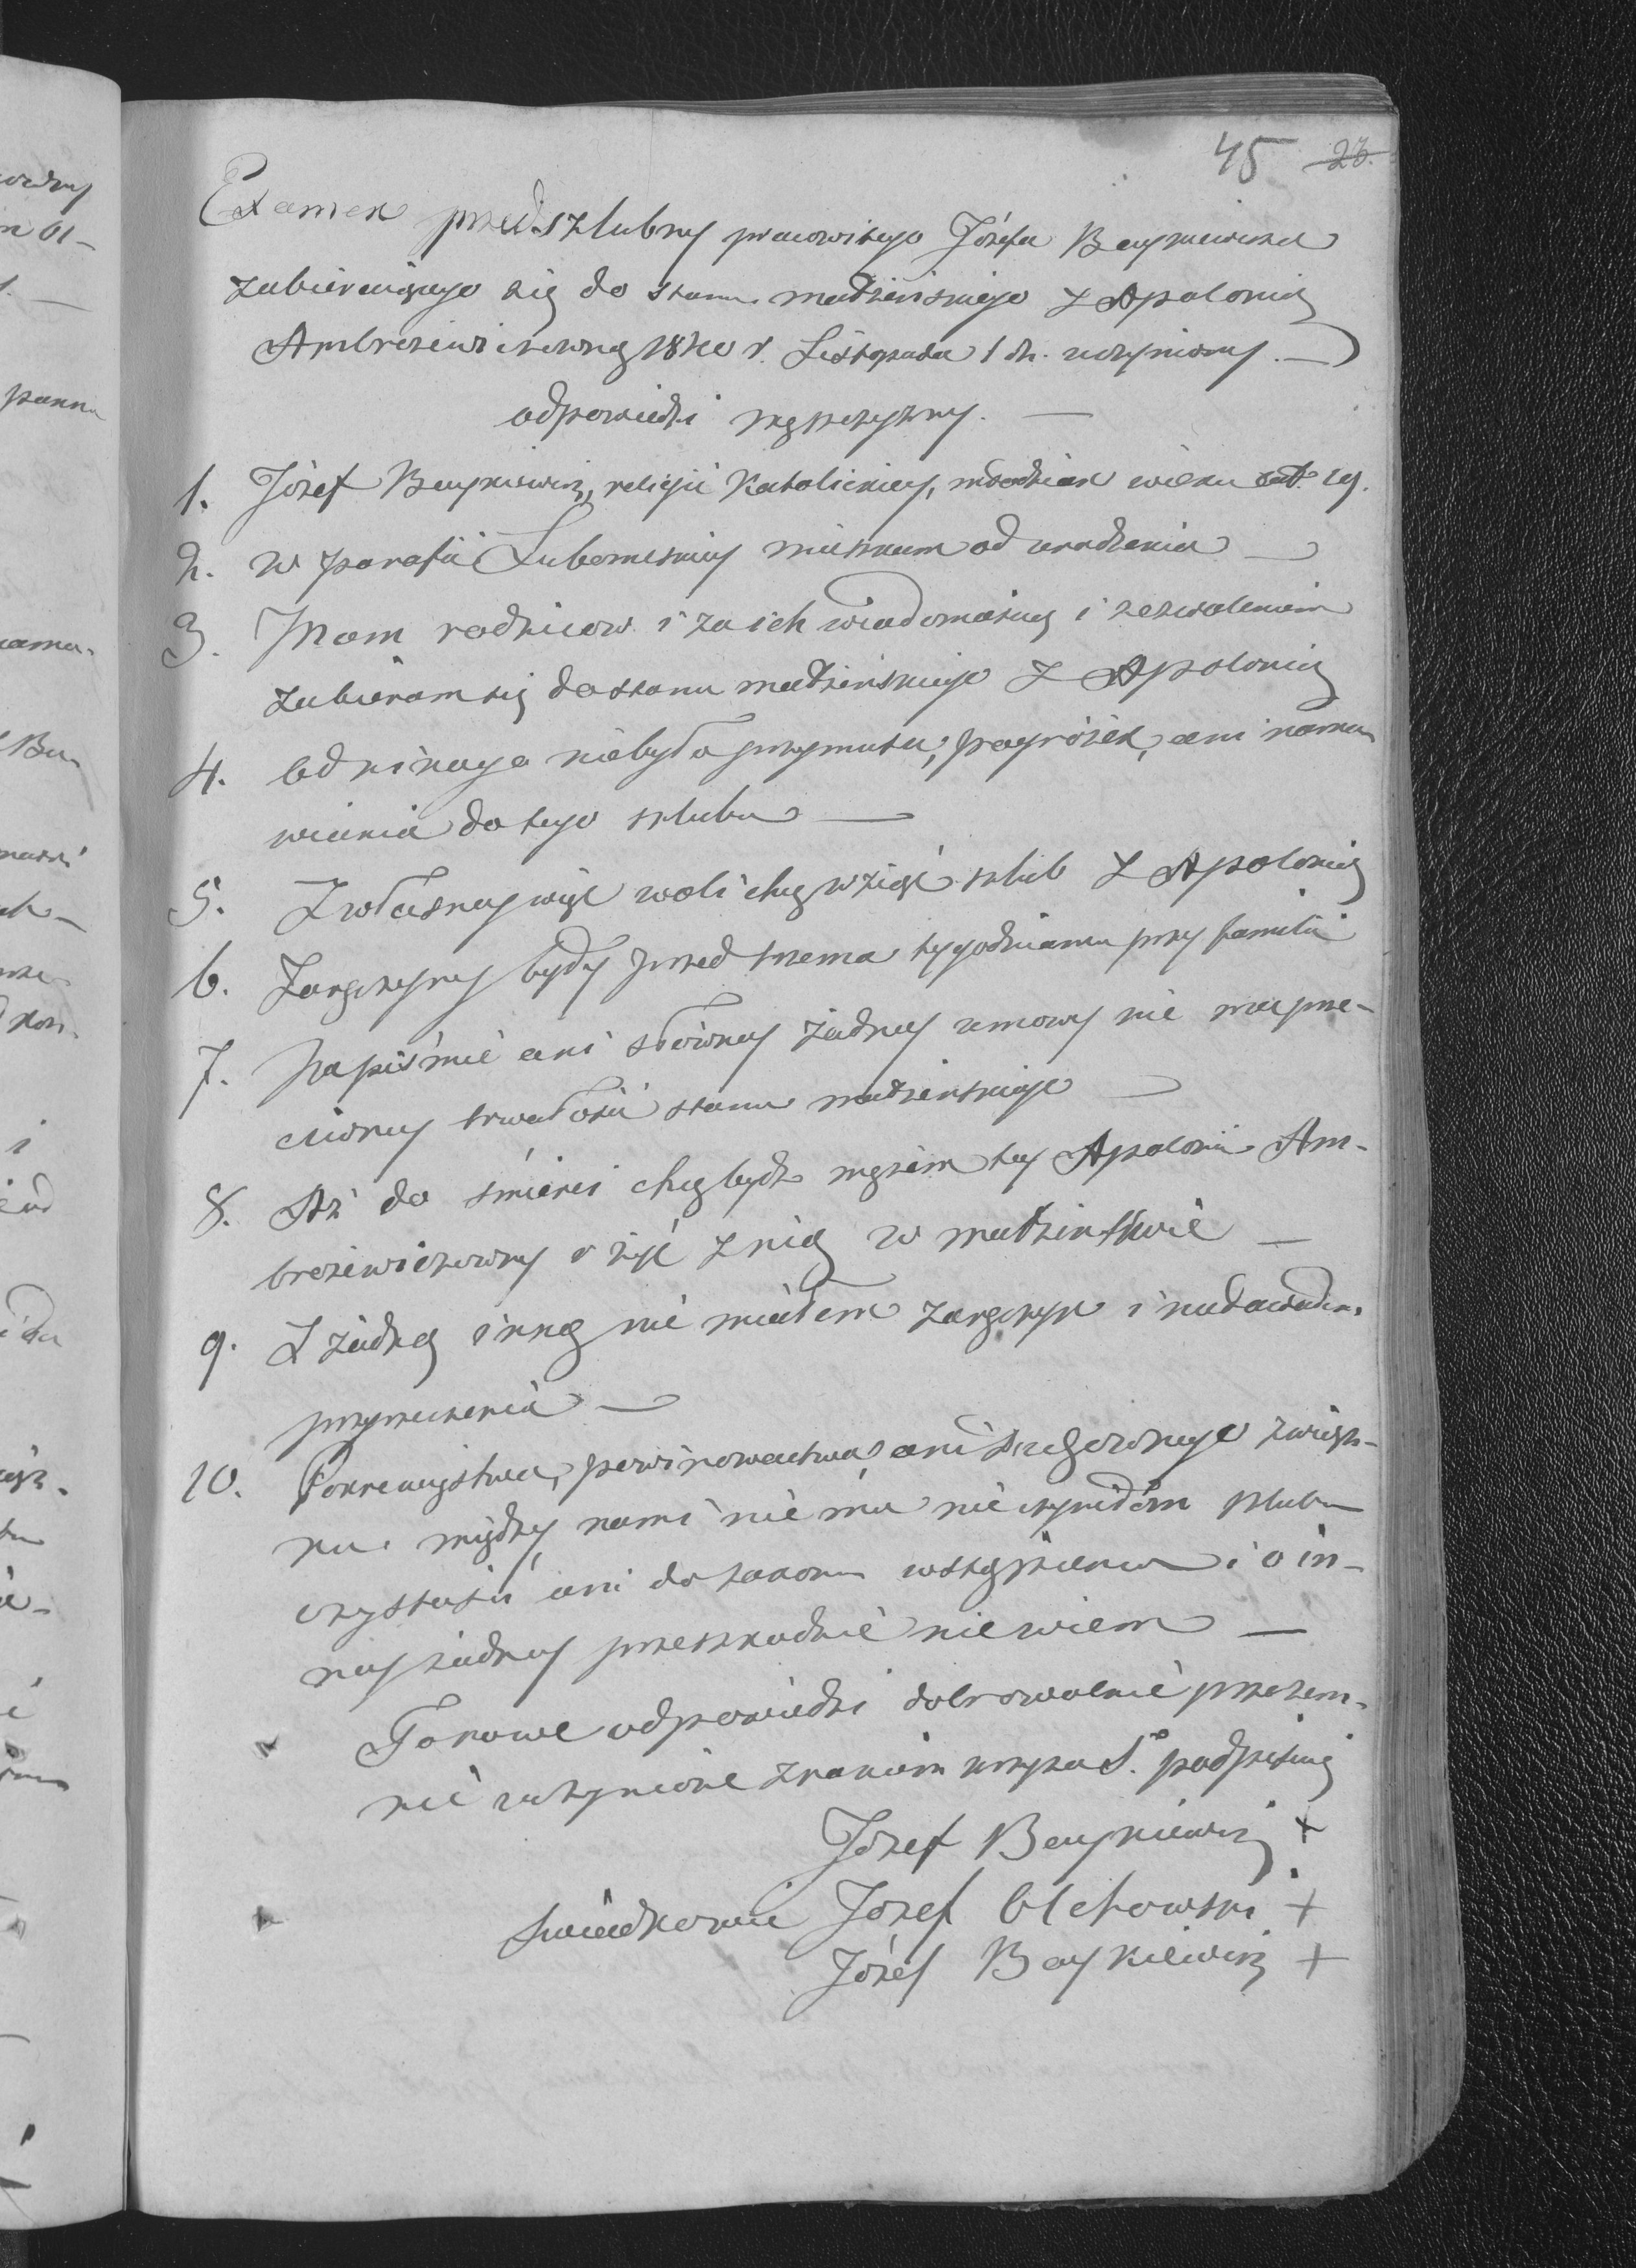 45 23.
Examen przedszlubny pracowitego Józefa Baykiewicza
zabieraiącego się do stanu małżeńskiego z Apolonią
Ambrożewiczowną 18 r. Listopada 1 dn. uczyniony. —
odpowiedzi mężczyzny. —
1. Józef Baykiewicz, religii Katolickiey, młodzian wieku lat 19.
2. w parafii Lubomskiey mieszkam od urodzenia —
3. Mam rodziców i za ich wiadomością i zezwoleniem
zabieram się do stanu małżeńskiego z Apolonią
4. Od nikogo niebyło przymusu, pogróżek, ani nama
wiania do tego szlubu —
5. Z własney więc woli chcę wziąść szlub z Apolonią
6. Zaręczyny były przed trzema tygodniami przy familii
7. Na piśmie ani słowney żadney umowy nie ma prze-
ciwney trwałości stanu małżeńskiego —
8. Aż do śmierci chcę bydź mężem tey Apolonii Am-
brożewiczowny i żyć z nią w małżeństwie —
9. Z żadną inną nie miałem zaręczyn i niedawałem
przyrzeczenia —
10. Pokrewieństwa, powinowactwa ani duchownego związ-
ku między nami nie ma nie czyniłem szlubu
czystości ani do zakonu wstąpienia i o in-
ney żadney przeszkodzie nie wiem —
Takowe odpowiedzi dobrowolnie przezem-
nie uczynione znakiem krzyża S. podpisuię
Józef Baykiewicz +
Świadkowie Józef Olchowski +
Józef Baykiewicz +